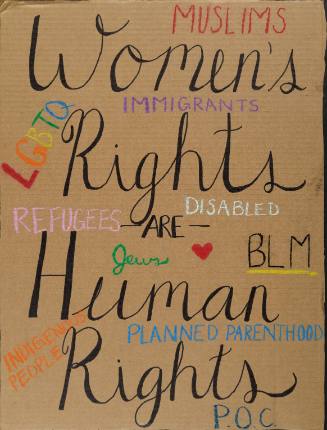 MUSLIMS
Women's
IMMIGRANTS
LGBTQ
Rights
DISABLED
REFUGEES
-ARE-
Jews
BLM
Human
PLANNED PARENTHOOD
INDIGENOUS
PEOPLE
Rights
P.O.C.